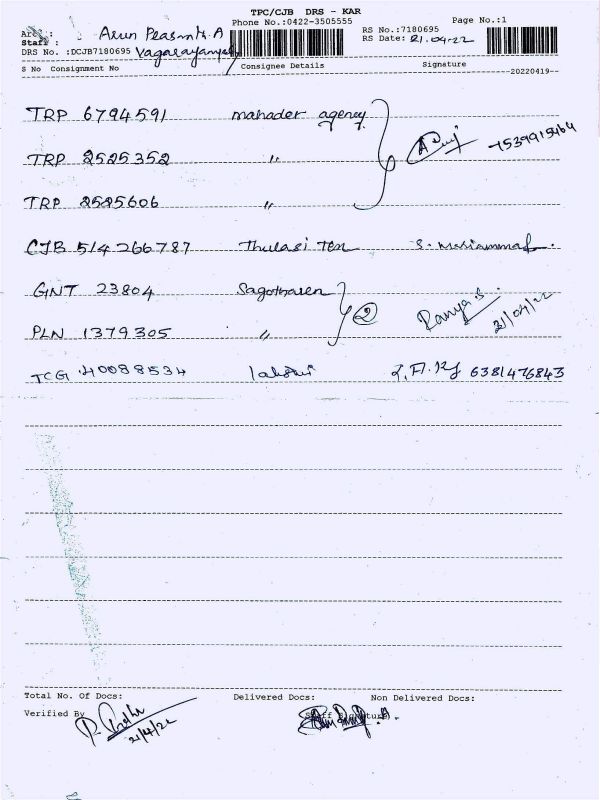 TPC/CJB DRS - KAR
Phone No.:0422-3505555
Page No.:1
Staff :
RS No.:7180695
RS Date: 21.04-22
DRS No. :DCJB7180695
S No Consignment No Consignee Details Signature
--20220419--
TRP 6794591 mahader agency
TRP 2525352 "
7539915464
TRP 2525606 "
CJB 514266787 Thulasi Tex S.
GNT 23804 Sagotharen
2 Ramya.S 21/04/22
PLN 1379305 "
TCG 40088534 lakshmi 6381476843
Total No. Of Docs: Delivered Docs: Non Delivered Docs:
Verified By
21/4/22